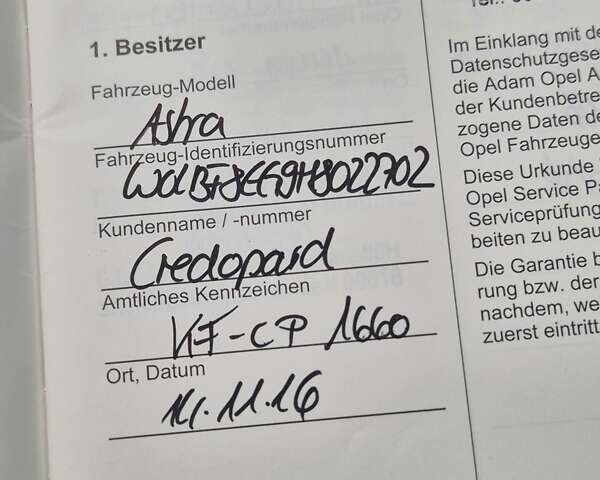 1. Besitzer
Fahrzeug-Modell
Astra
Fahrzeug-Identifizierungsnummer
Kundenname / -nummer
Credopard
Amtliches Kennzeichen
KF-CP 1660
Ort, Datum
14.11.16
Im Einklang mit de
Datenschutzgese
die Adam Opel A
der Kundenbetre
zogene Daten de
Opel Fahrzeuge
Diese Urkunde
Opel Service Pa
Serviceprüfung
beiten zu beau
Die Garantie b
rung bzw. der
nachdem, we
zuerst eintritt